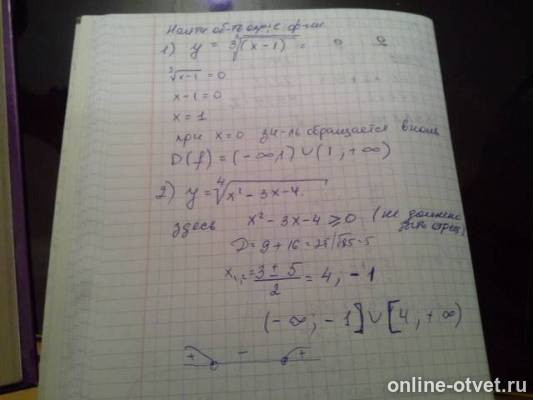 Найти об-ть опр-е ф-ии.
1) y = 3√(x-1) = 0 0
∛x-1 = 0
x-1=0
x = 1
при x=0 зн-ль обращается в ноль
D(f) = (-∞,1) ∪ (1, +∞)
2) y = ∜x² - 3x - 4.
здесь x² - 3x - 4 ⩾ 0 (не должно
быть отриц)
D = 9 + 16 = 25
x₁,₂ = 3 ± 5 / 2 = 4; -1
(-∞; -1] ∪ [4, +∞)
+ - +
online-otvet.ru